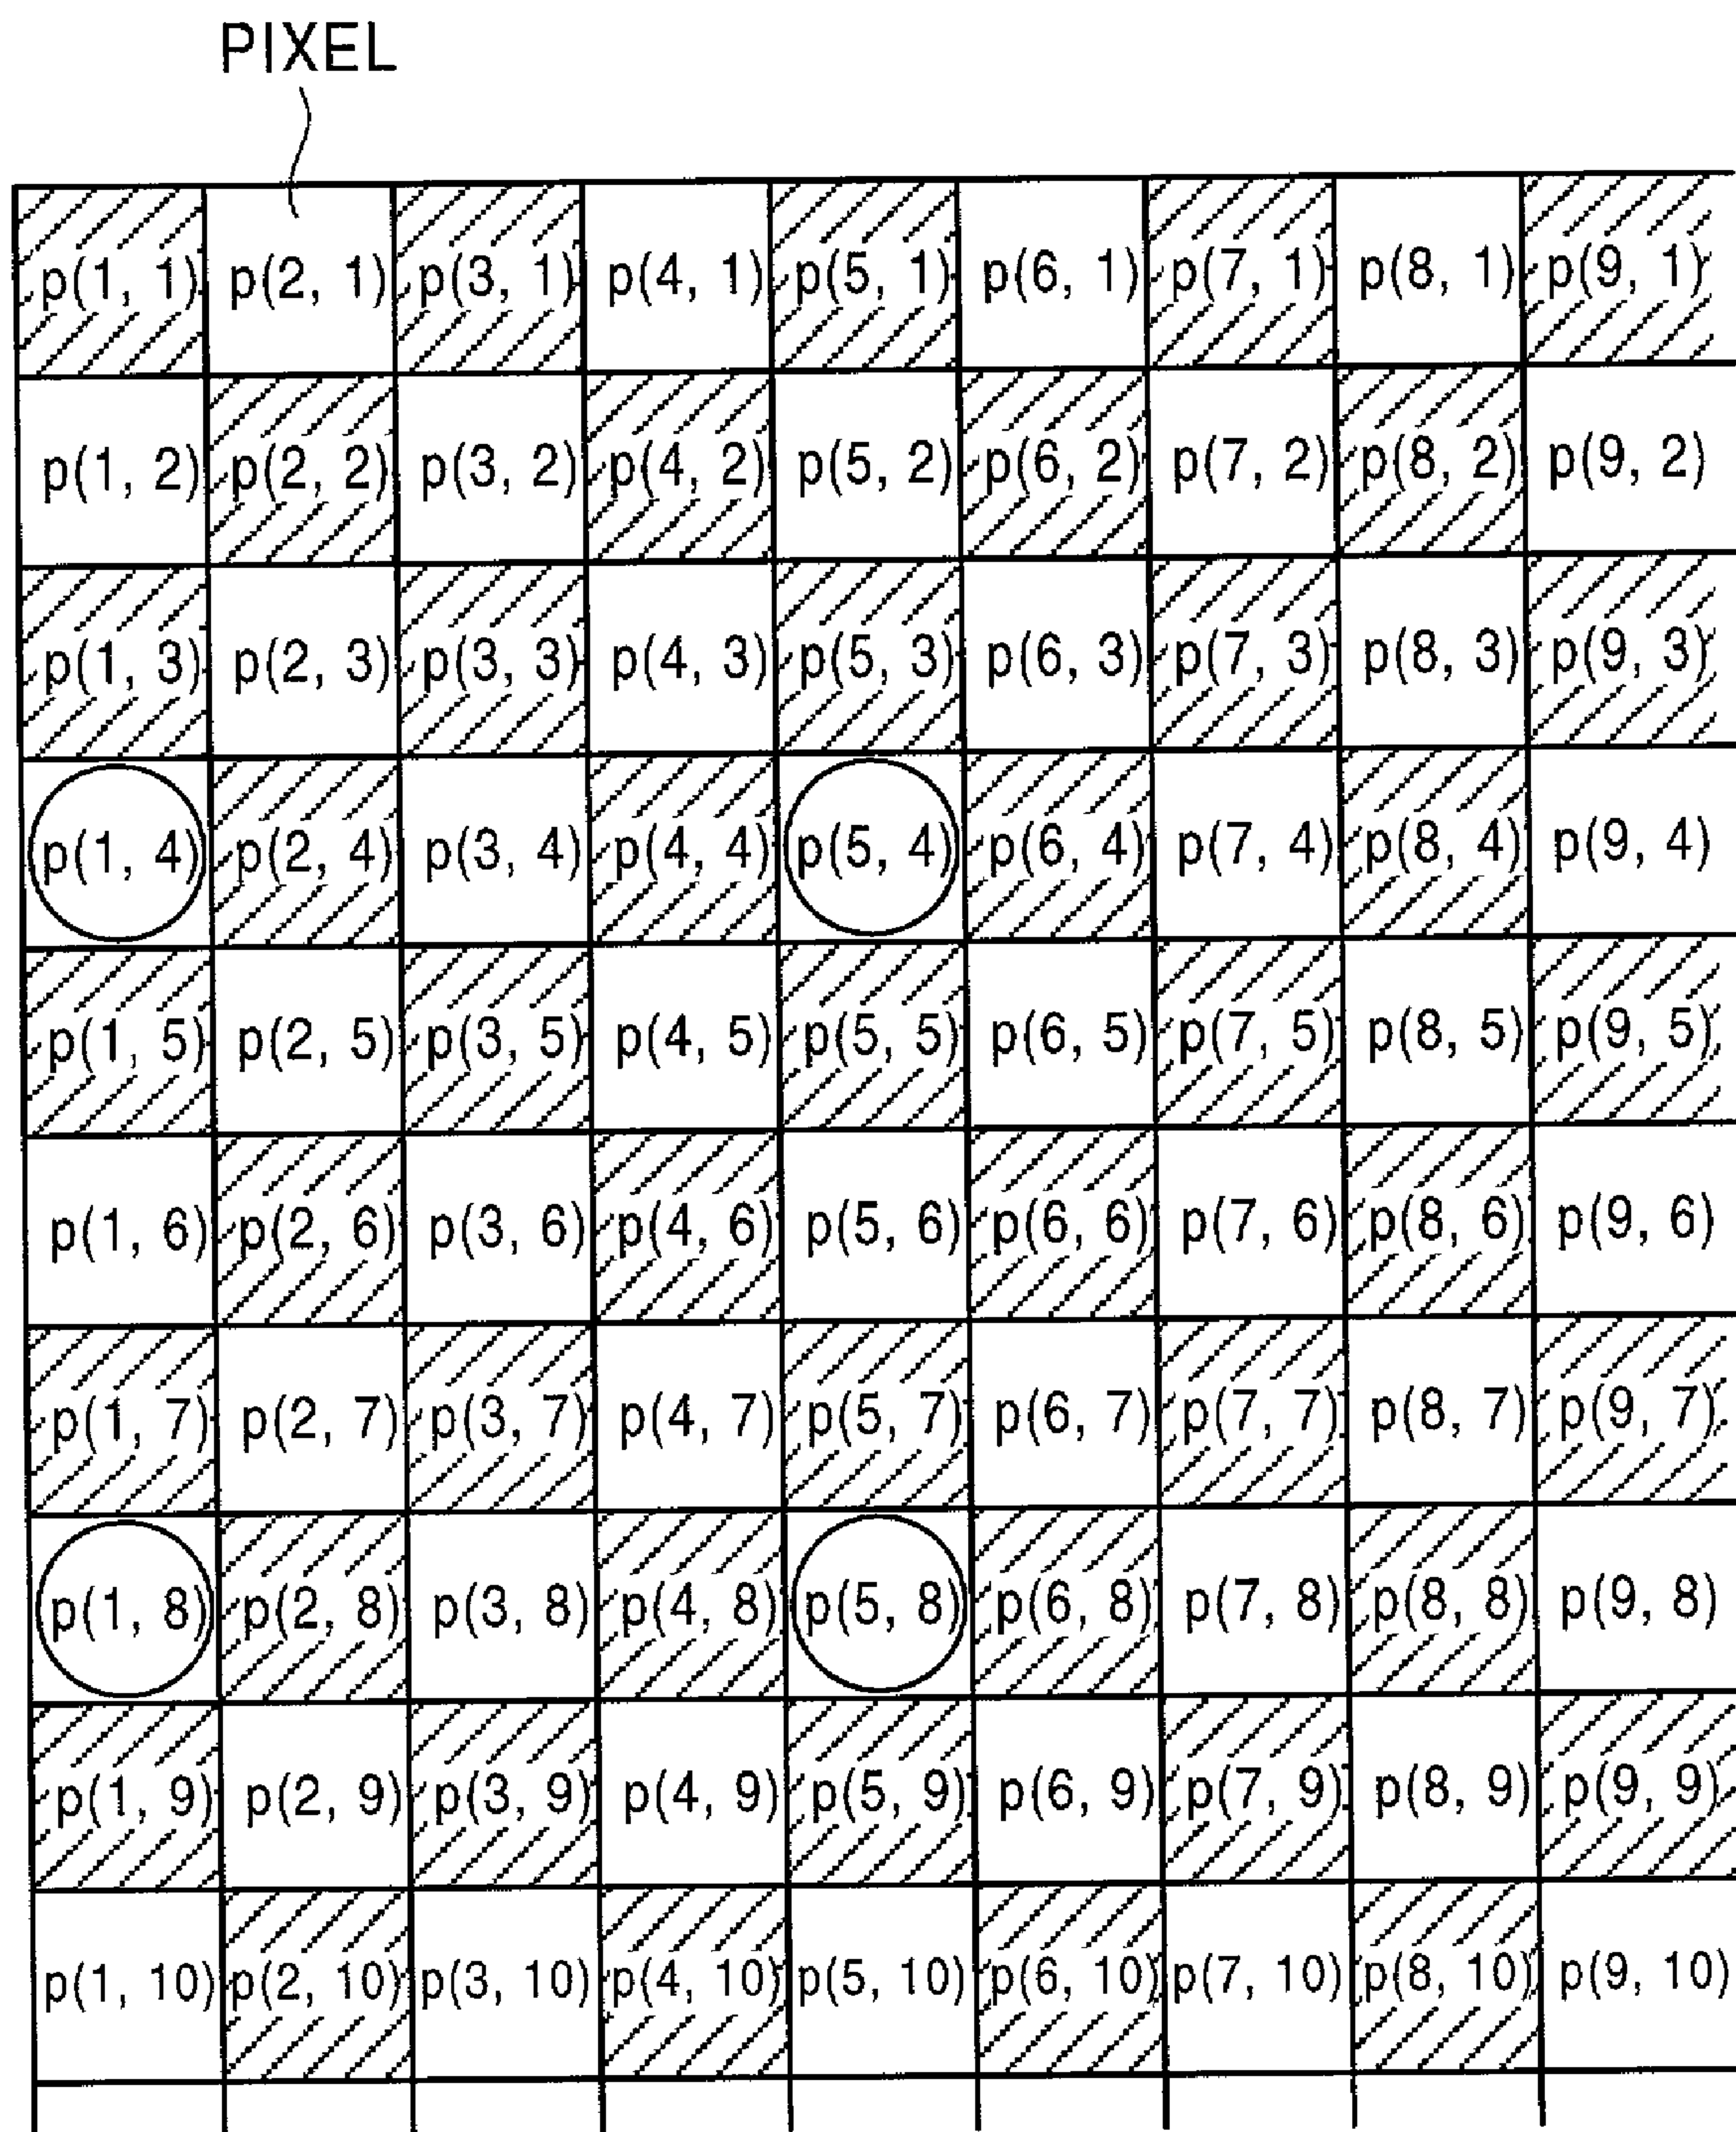 PIXEL
p(1, 1) p(2, 1) p(3, 1) p(4, 1) p(5, 1) p(6, 1) p(7, 1) p(8, 1) p(9, 1)
p(1, 2) p(2, 2) p(3, 2) p(4, 2) p(5, 2) p(6, 2) p(7, 2) p(8, 2) p(9, 2)
p(1, 3) p(2, 3) p(3, 3) p(4, 3) p(5, 3) p(6, 3) p(7, 3) p(8, 3) p(9, 3)
p(1, 4) p(2, 4) p(3, 4) p(4, 4) p(5, 4) p(6, 4) p(7, 4) p(8, 4) p(9, 4)
p(1, 5) p(2, 5) p(3, 5) p(4, 5) p(5, 5) p(6, 5) p(7, 5) p(8, 5) p(9, 5)
p(1, 6) p(2, 6) p(3, 6) p(4, 6) p(5, 6) p(6, 6) p(7, 6) p(8, 6) p(9, 6)
p(1, 7) p(2, 7) p(3, 7) p(4, 7) p(5, 7) p(6, 7) p(7, 7) p(8, 7) p(9, 7)
p(1, 8) p(2, 8) p(3, 8) p(4, 8) p(5, 8) p(6, 8) p(7, 8) p(8, 8) p(9, 8)
p(1, 9) p(2, 9) p(3, 9) p(4, 9) p(5, 9) p(6, 9) p(7, 9) p(8, 9) p(9, 9)
p(1, 10) p(2, 10) p(3, 10) p(4, 10) p(5, 10) p(6, 10) p(7, 10) p(8, 10) p(9, 10)